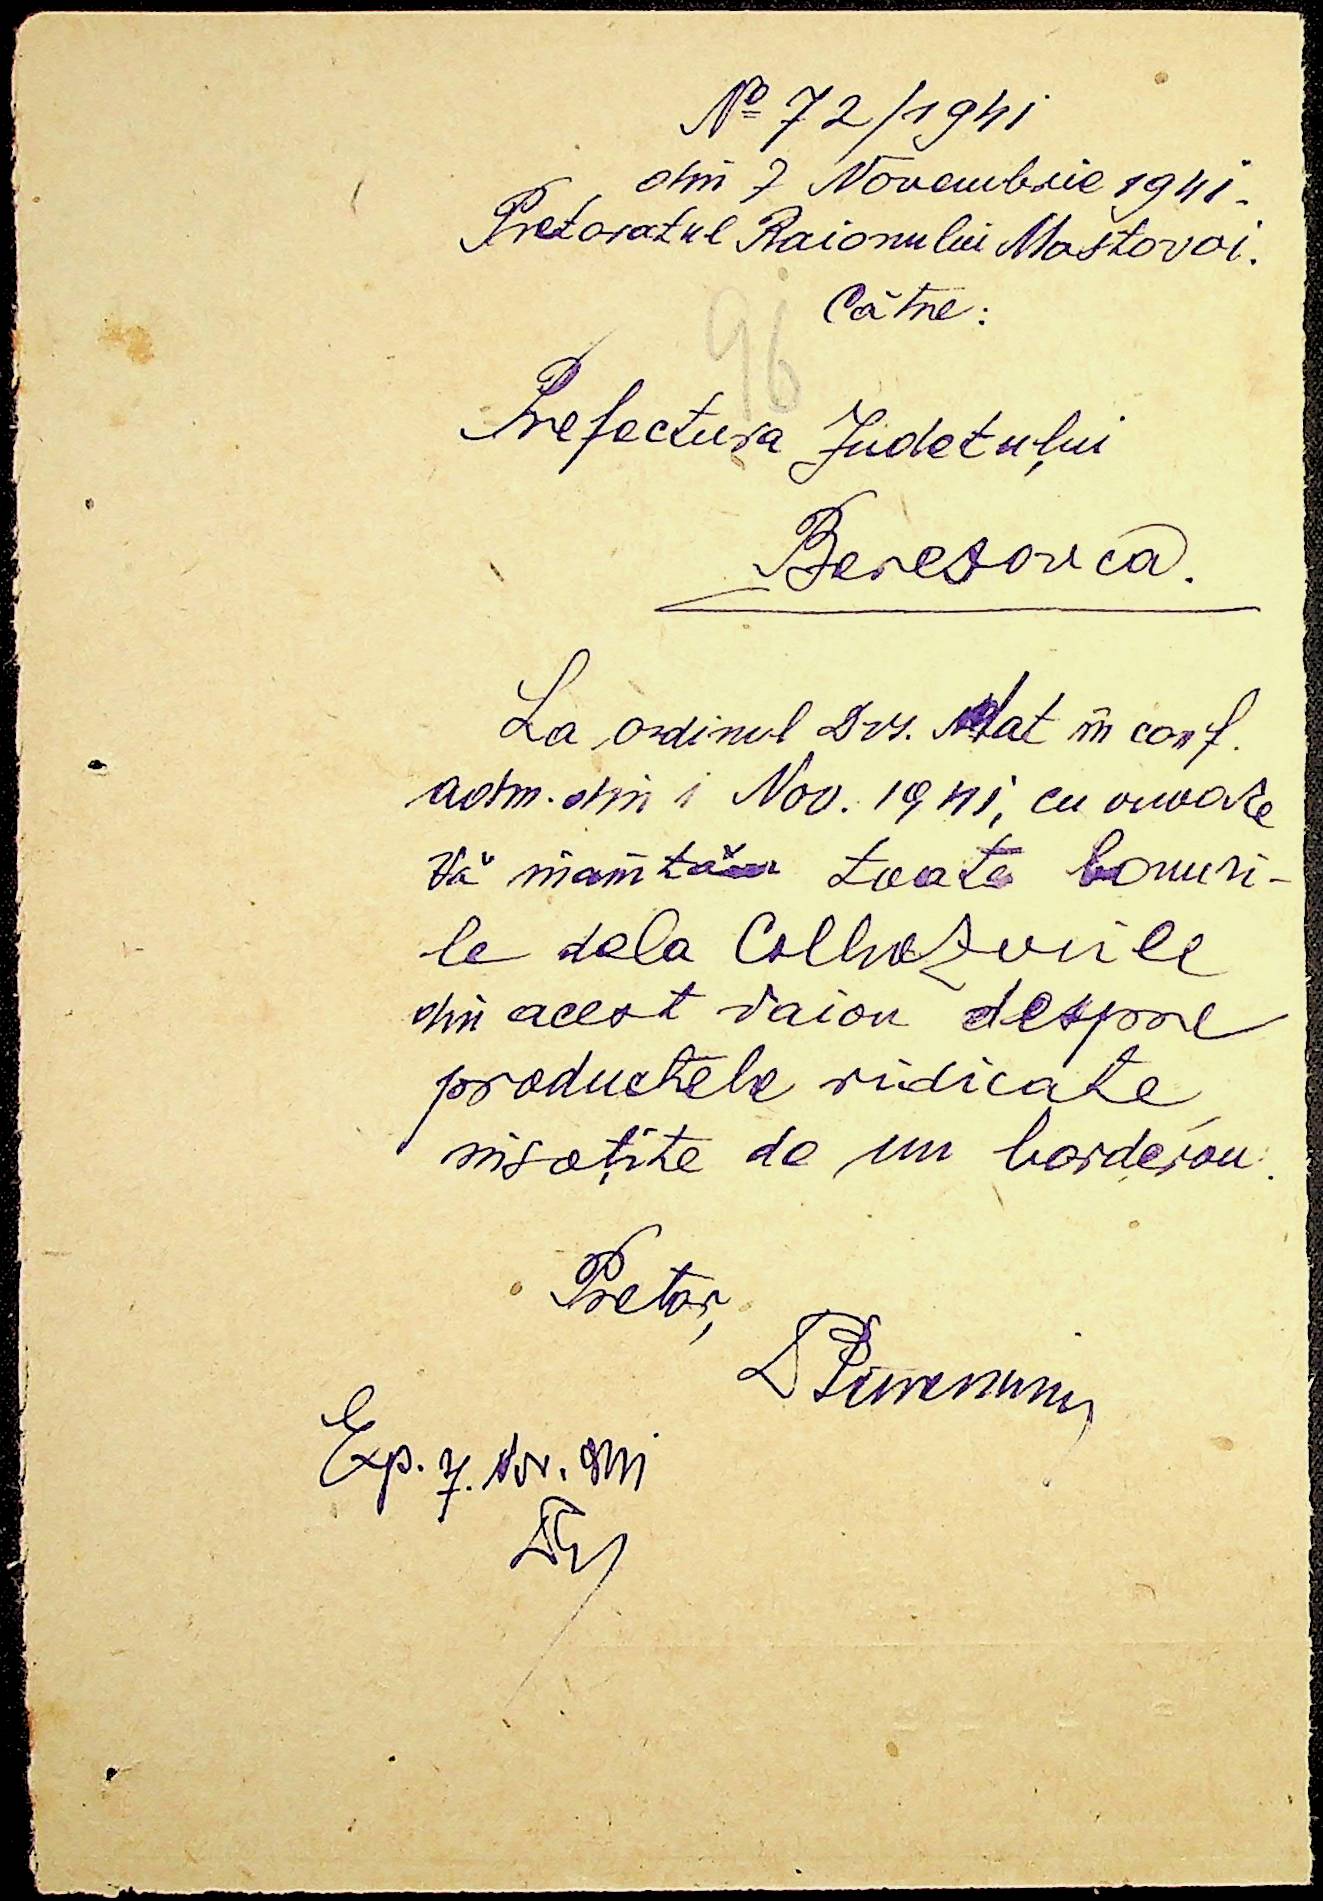 № 72/1941
din 7 Novembrie 1941.
Pretoratul Raionului Mostovoi.
Către:
96
Prefectura Județului
Beresovca.
La ordinul Dvs. dat în conf.
adm. din 1 Nov. 1941, cu onoare
Vă înaintăm toate bonuri-
le dela Colhozurile
din acest raion despre
productele ridicate,
însoțite de un borderou.
Pretor,
Exp. 7. Nov. 941